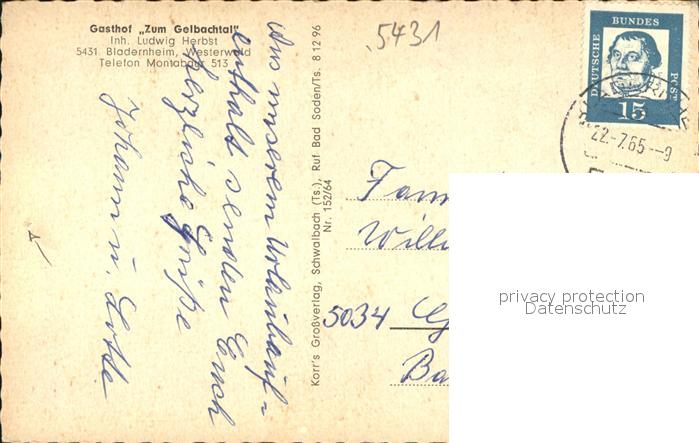 Gasthof „Zum Gelbachtal"
Inh. Ludwig Herbst
5431 Bladernheim, Westerwald
Telefon Montabaur 513
5431
DEUTSCHE
BUNDES
POST
15
22.-7.65--9
Aus unserem Urlaubauf-
enthalt senden Euch
herzliche Grüße
Johann u. Lotte
Korr's Großverlag, Schwalbach (Ts.), Ruf Bad Soden/Ts. 8 12 96
Nr. 152/64
Fam
Will
5034
Ba
privacy protection
Datenschutz